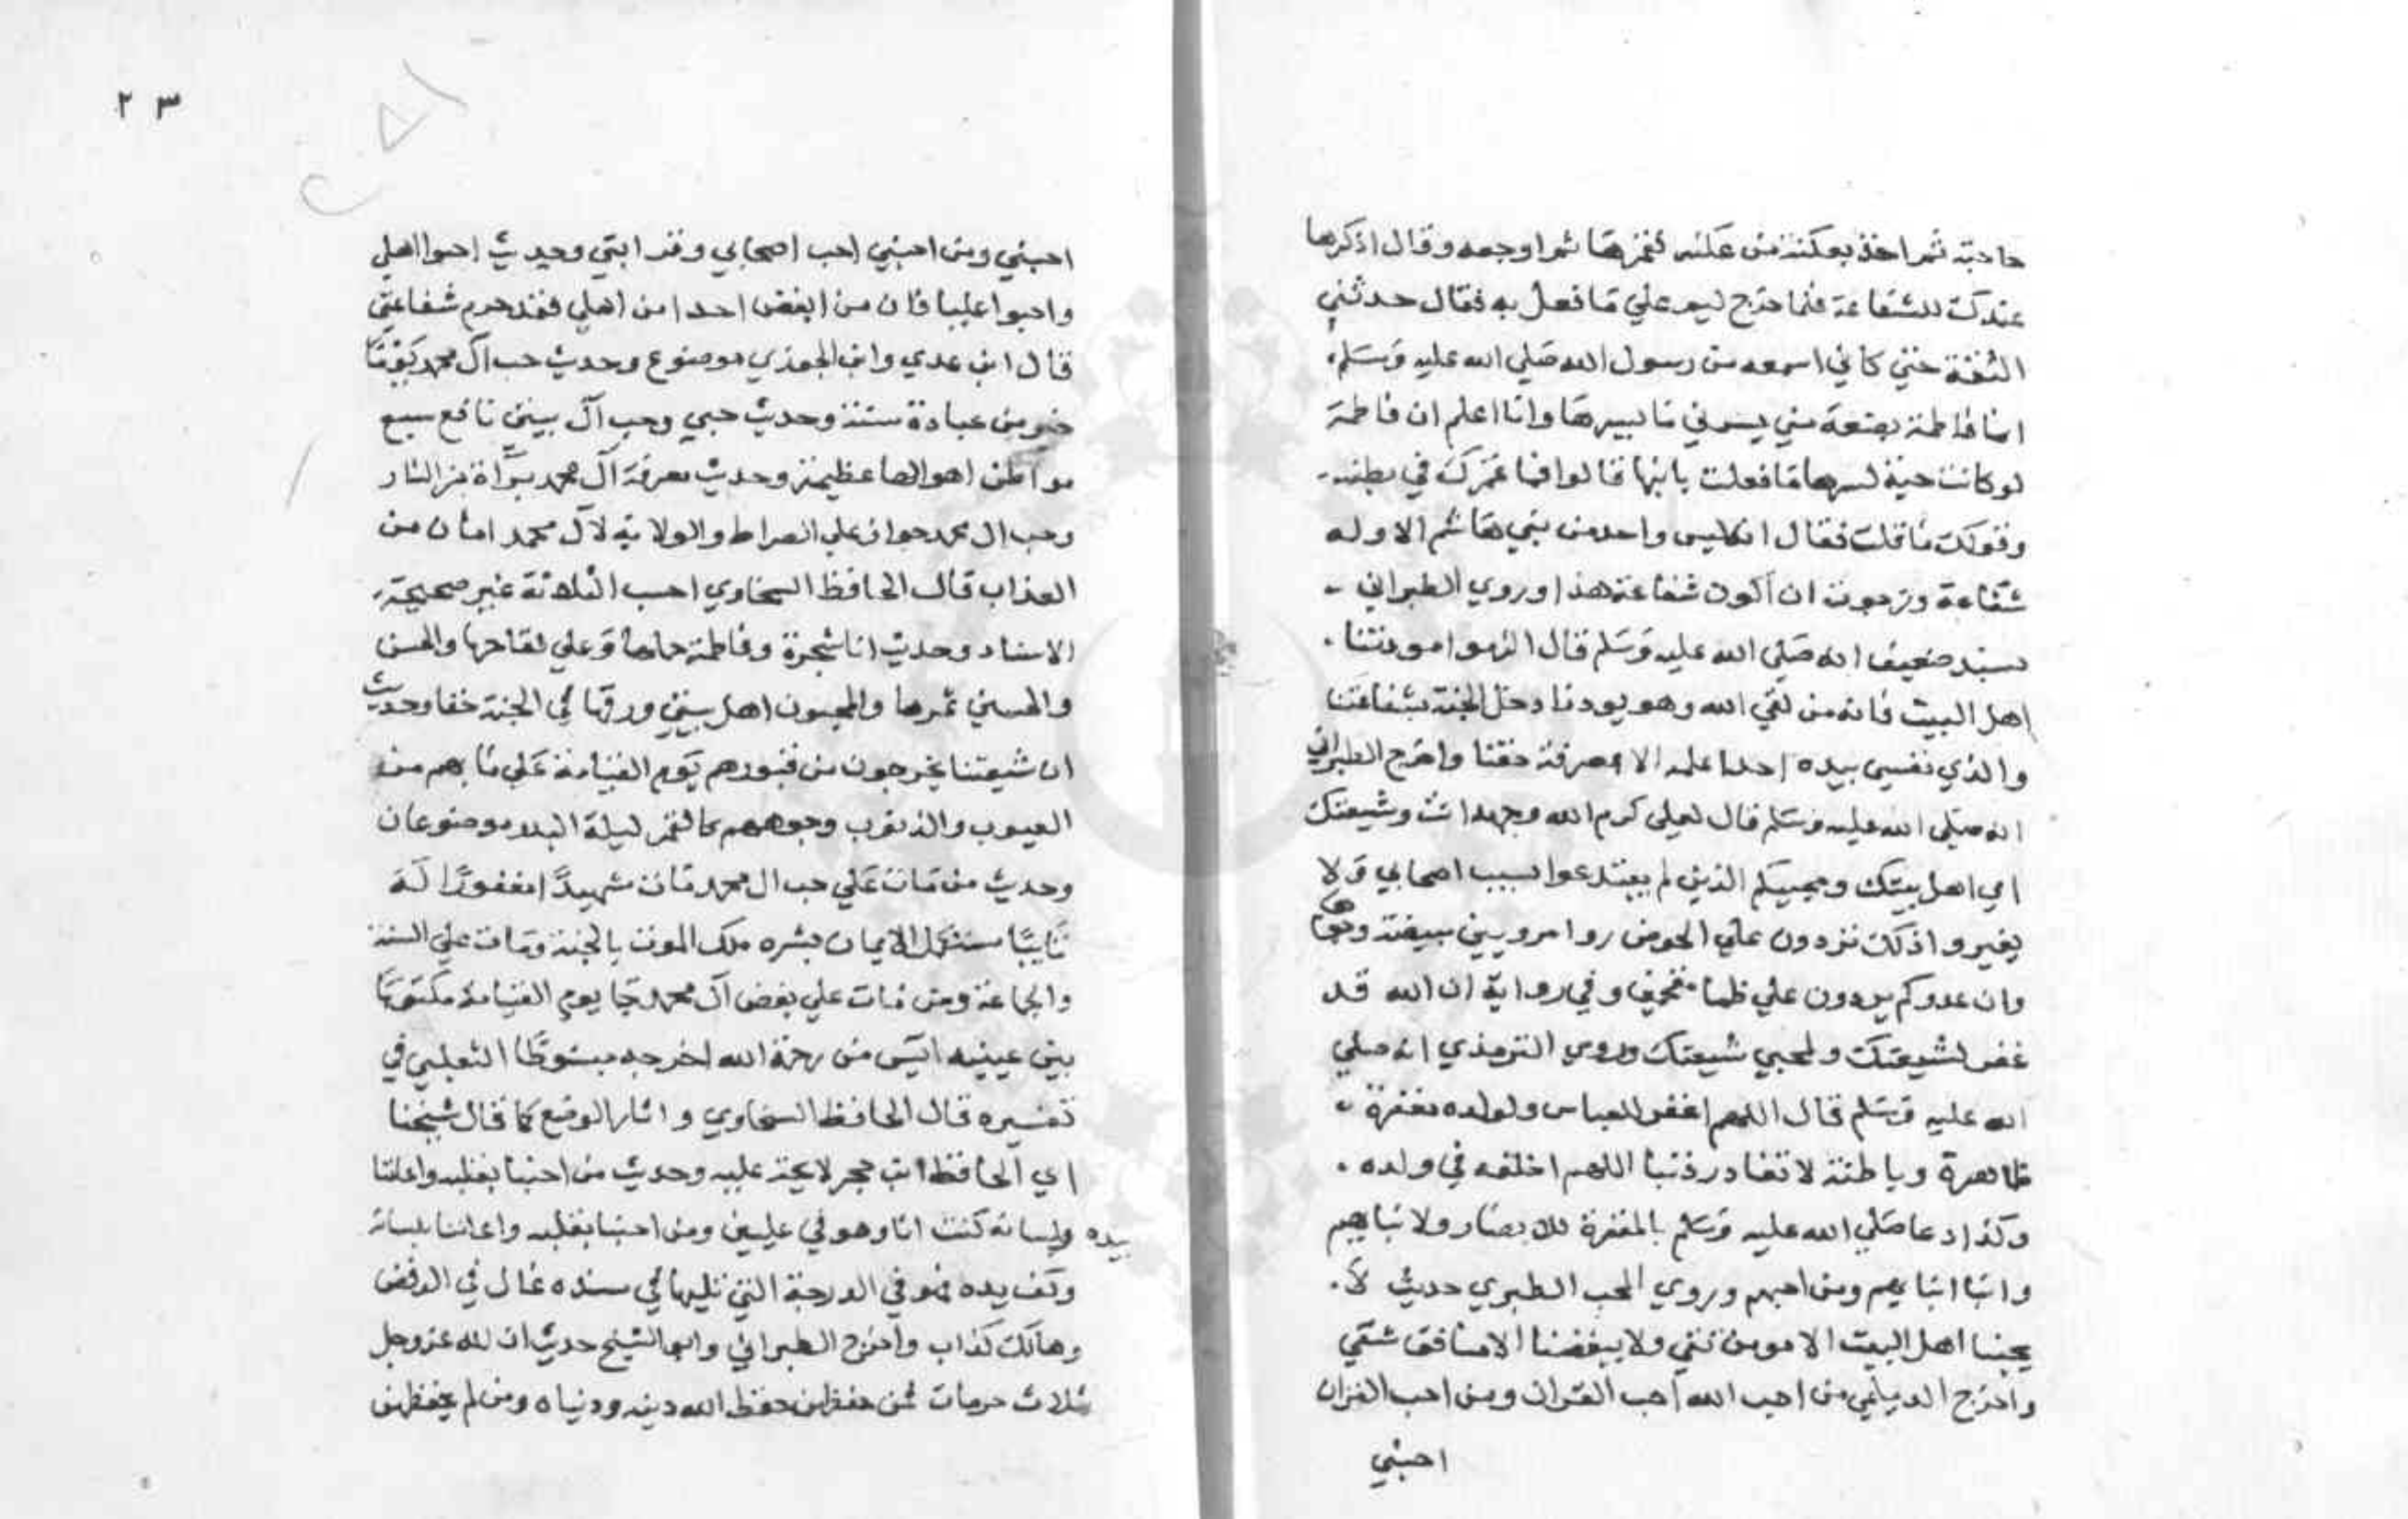 حاجته ثم اخذ بعكنة من عكنه فغمزها ثم اوجعه وقال اذكرها
عندك للشفاعة فلما خرج ليم علي ما فعل به فقال حدثني
الثقة حتي كاني اسمعه من رسول الله صلي الله عليه وسلم
انما فاطمة بضعة مني يسرني ما يسرها وانا اعلم ان فاطمة
لو كانت حية لسرها ما فعلت بابنها قالوا فما غمزك في بطنه
وقولك ما قلت فقال انه ليس واحد من بني هاشم الا وله
شفاعة ورجوت ان اكون شفاعة هذا وروي الطبراني
بسند ضعيف انه صلي الله عليه وسلم قال الزموا مودتنا
اهل البيت فانه من لقي الله وهو يودنا دخل الجنة بشفاعتنا
والذي نفسي بيده احدا عمله الا بمعرفة حقنا واخرج الطبراني
انه صلي الله عليه وسلم قال لعلي كرم الله وجهه انت وشيعتك
اي اهل بيتك ومحبيكم الذين لم يبتدعوا بسبب اصحابي ولا
بغير واذلك تردون علي الحوض روا مرويين مبيضة وجوهكم
وان عدوكم يردون علي ظما مقمحين وفي رواية ان الله قد
غفر لشيعتك ولمحبي شيعتك وروي الترمذي انه صلي
الله عليه وسلم قال اللهم اغفر للعباس ولولده مغفرة
ظاهرة وباطنة لا تغادر ذنبا اللهم اخلفه في ولده
وكذا دعا صلي الله عليه وسلم بالمغفرة للانصار ولابنايهم
وابنا ابنايهم ومن احبهم وروي المحب الطبري حديث لا
يحبنا اهل البيت الا مومن تقي ولا يبغضنا الا منافق شقي
واخرج الديلمي من احب الله احب القران ومن احب القران
احبني
٢٣
احبني ومن احبني احب اصحابي وقرابتي وحديث احبوا اهلي
واحبوا عليا فان من ابغض احدا من اهلي فقد حرم شفاعتي
قال ابن عدي وابن الجوزي موضوع وحديث حب آل محمد يوما
خير من عبادة سنة وحديث حبي وحب آل بيتي نافع سبع
مواطن اهوالها عظيمة وحديث معرفة آل محمد براة من النار
وحب ال محمد جواز علي الصراط والولاية لآل محمد امان من
العذاب قال الحافظ السخاوي احسب الثلاثة غير صحيحة
الاسناد وحديث انا شجرة وفاطمة حملها وعلي لقاحها والحسن
والحسين ثمرها والمحبون اهل بيتي ورقها في الجنة حقا وحديث
ان شيعتنا يخرجون من قبورهم يوم القيامة علي ما بهم من
العيوب والذنوب وجوههم كالقمر ليلة البدر موضوعان
وحديث من مات علي حب ال محمد مات شهيدا مغفورا له
تايبا مستكمل الايمان بشره ملك الموت بالجنة ومات علي السنة
والجماعة ومن مات علي بغض آل محمد جا يوم القيامة مكتوبا
بين عينيه ايس من رحمة الله اخرجه مبسوطا الثعلبي في
تفسيره قال الحافظ السخاوي واثار الوضع كما قال شيخنا
اي الحافظ ابن حجر لايحة عليه وحديث من احبنا بقلبه واعاننا
بيده ولسانه كنت انا وهو في عليين ومن احبنا بقلبه واعاننا بلسانه
وكف يده فهو في الدرجة التي تليها في سنده غال في الرفض
وهالك كذاب واخرج الطبراني وابو الشيخ حديث ان لله عز وجل
ثلاث حرمات فمن حفظهن حفظ الله دينه ودنياه ومن لم يحفظهن